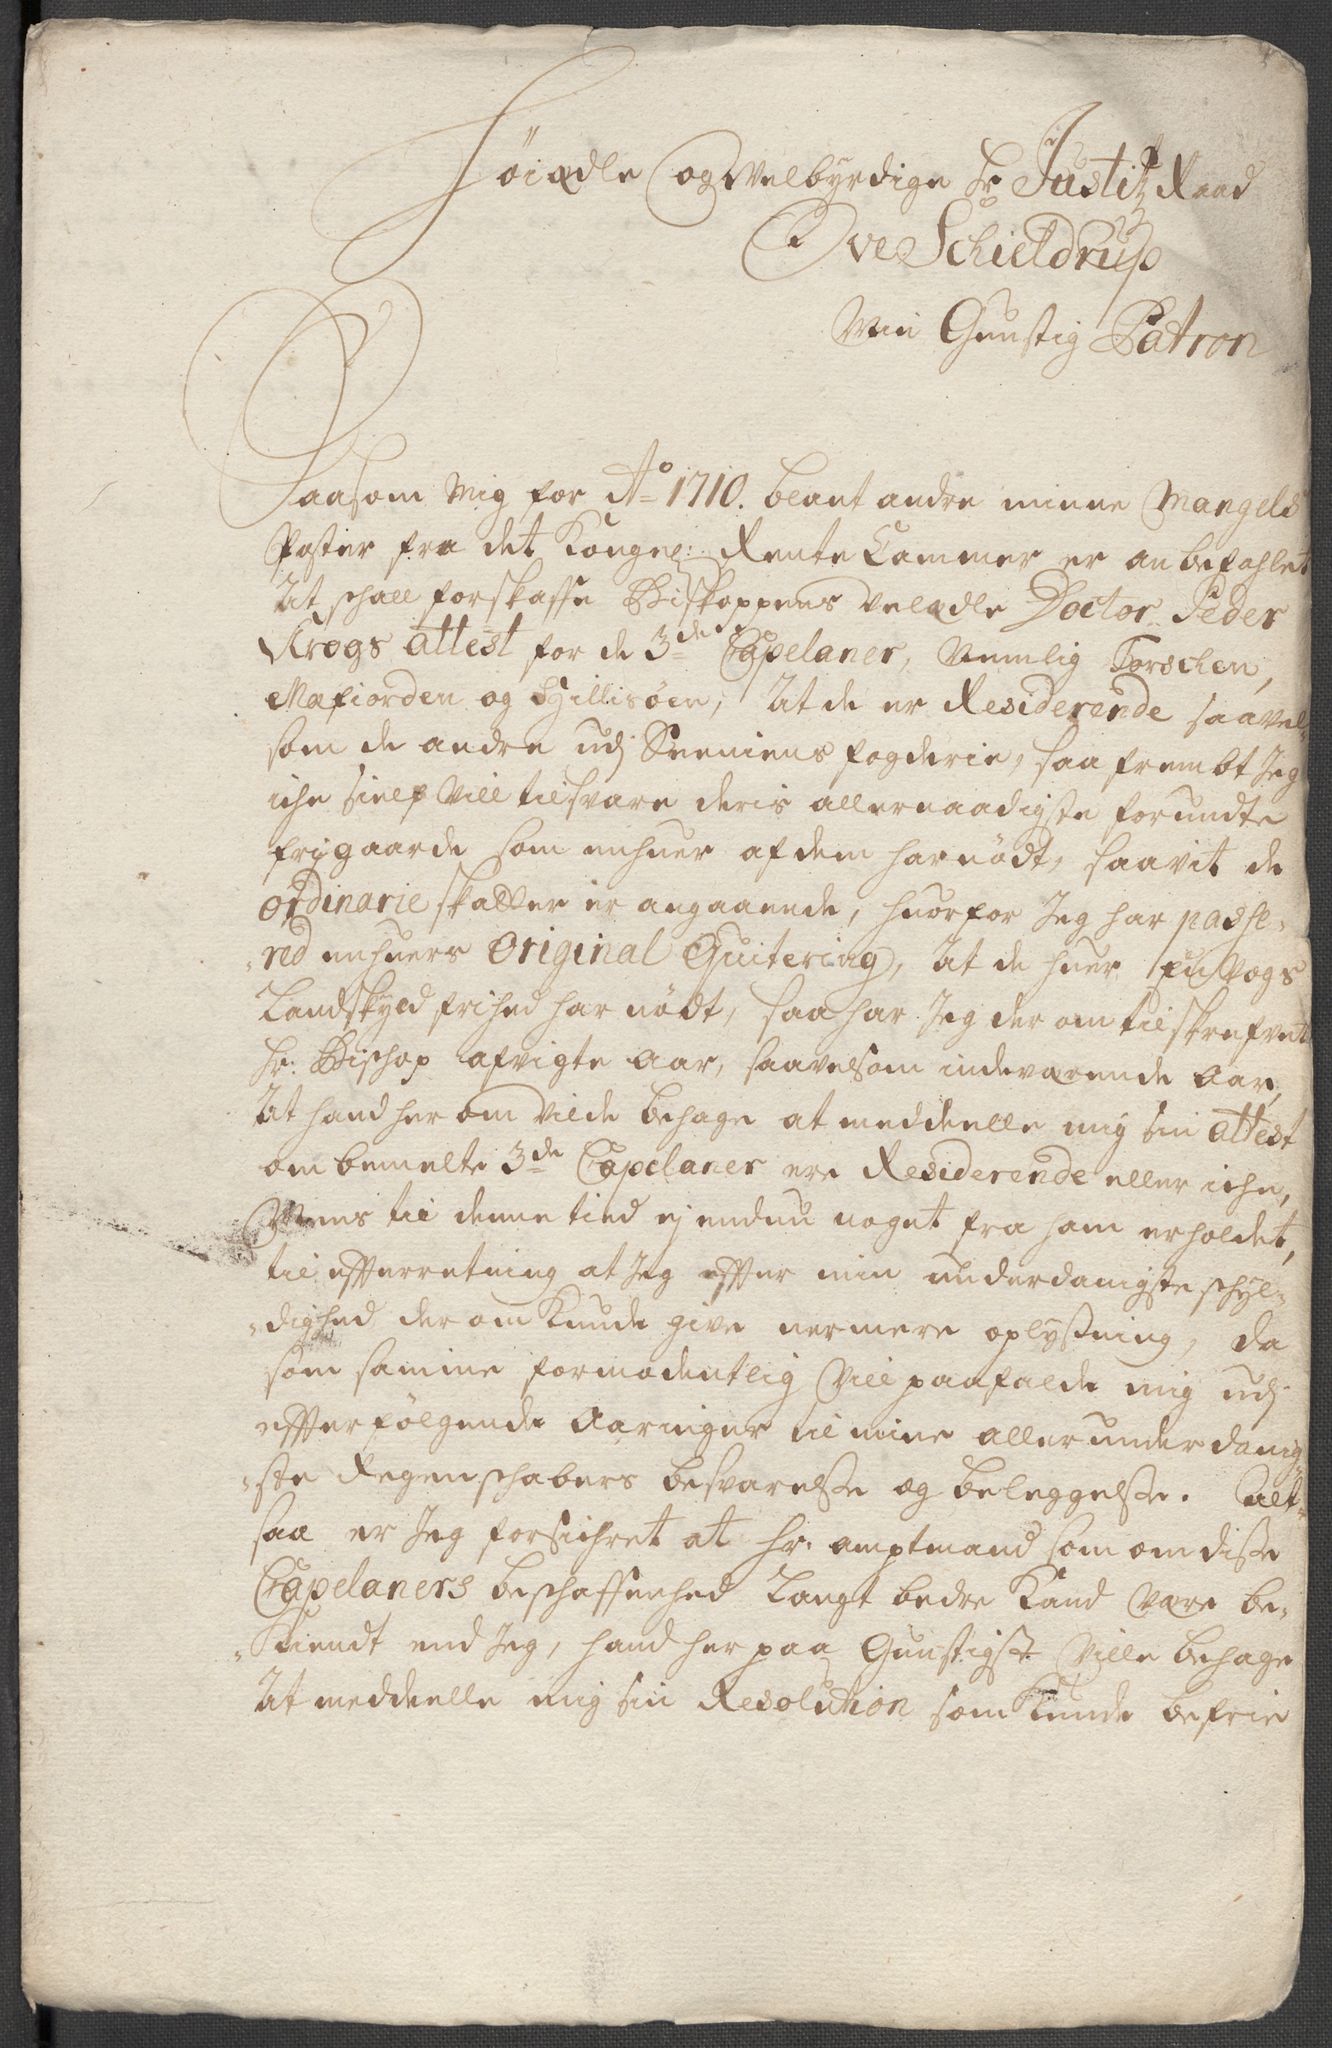 Høiædle og Welbÿrdige Hr Justitz Raad
Ove Schieldrup
Min Gunstig Patron
Saasom mig for Ao 1710. blant andre minne Mangels
Poster fra det Kongel: Rente Cammer er anbefahlet
At schall forskaffe Biskoppens Velædle Doctor Peder
Krogs attest for de 3de Capelaner, Nemlig Torschen,
Mæfiorden og Hillisøen, At de er Residerende saavel-
som de andre udj Senniens fogderie, saa frembt Jeg
iche sielf vill tilsvare deris allernaadigste forundte
frigaarde som enhuer af dem har nödt, saavit de
ordinarie skatter er angaaende, huorfor Jeg har passe-
-red enhuers Original Quitering, At de huer
Landskyld frihed har nödt, saa har Jeg der om tilskrefvet
Hr. Bischop afvigte aar, saavelsom indeværende aar,
At hand her om vilde behage at meddeelle mig sin attest
om bemelte 3de Capelaner ere Residerende eller iche,
Mens til denne tied ej endnu noget fra ham erholdet,
til efterretning at Jeg efter min underdanigste schÿl-
-dighed der om kunde give nermere oplÿsning, da
som samme formodentlig vill paafalde mig udj
efterfølgende aaringer til mine allerunderdanig-
-ste Regenschabers besvarelse og beleggelse. Alt-
saa er Jeg forsichret at Hr. amptmand som om disse
Capelaners beschaffenhed langt bedre kand være be-
-kiendt end Jeg, hand her paa Gunstigst ville behage
At meddeelle mig sin Resolution som kunde befrie